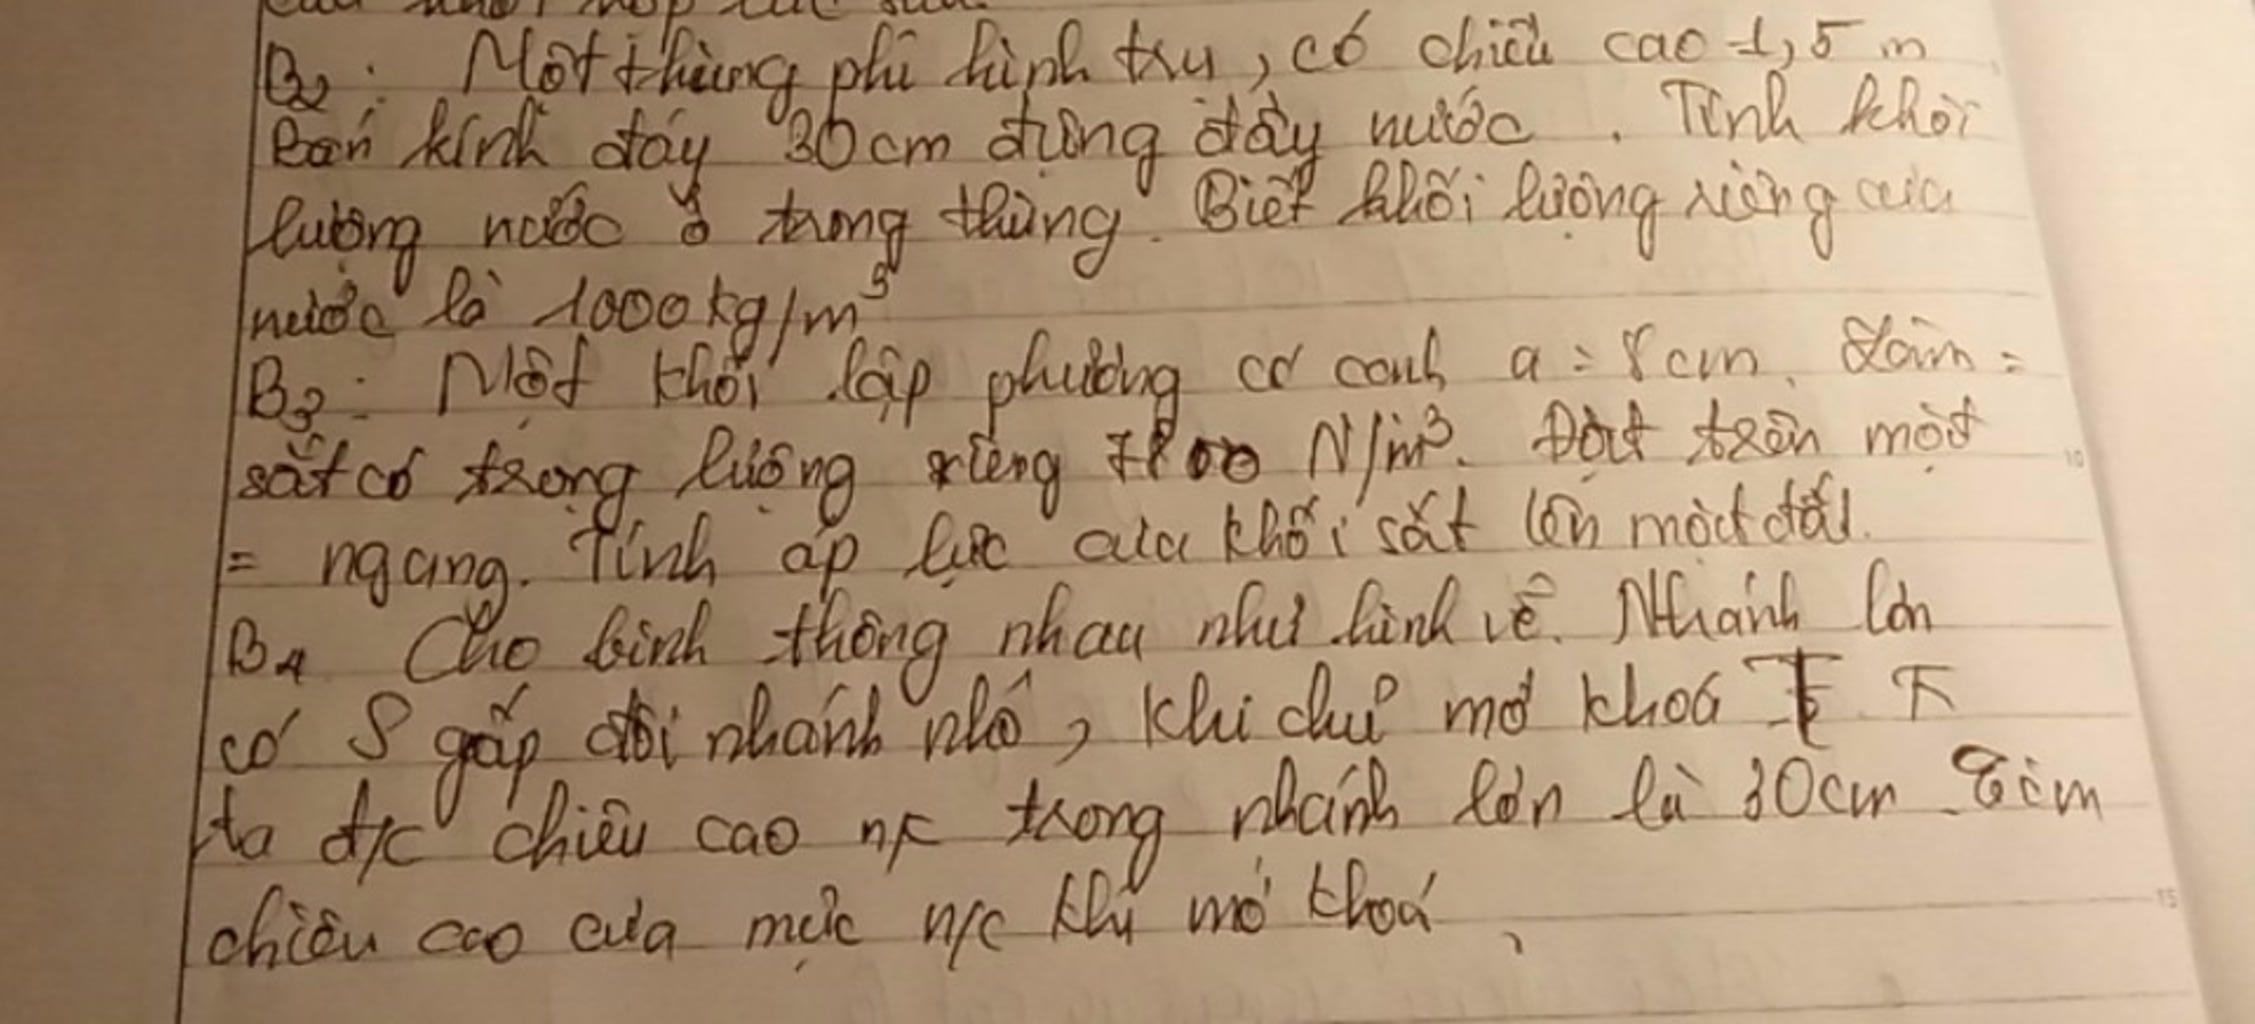 B2: Một thùng phi hình trụ, có chiều cao 1,5 m
Bán kính đáy 30cm đựng đầy nước. Tính khối
lượng nước ở trong thùng. Biết khối lượng riêng của
nước là 1000kg/m³
B3: Một khối lập phương có cạnh a = 8cm. Làm =
sắt có trọng lượng riêng 7800 N/m³. Đặt trên một
= ngang. Tính áp lực của khối sắt lên mặt đất.
B4 Cho bình thông nhau như hình vẽ. Nhánh lớn
có S gấp đôi nhánh nhỏ, khi chưa mở khoá T K
ta đ/c chiều cao n/c trong nhánh lớn là 30cm. Tìm
chiều cao của mực n/c khi mở khoá